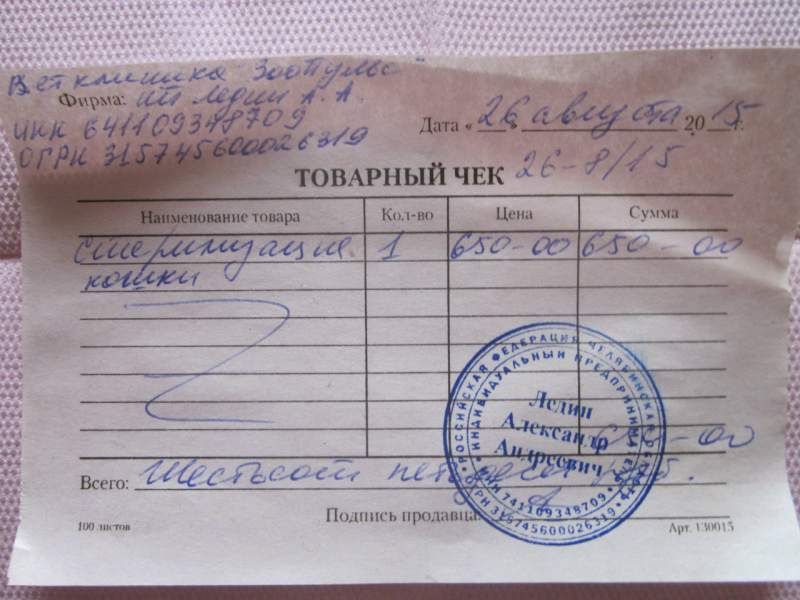 Ветклиника Зоопульс
Фирма: ИП Ледин А.А.
ИНН 641109348709
ОГРН 315745600026319
Дата «26» августа 2015 г.
ТОВАРНЫЙ ЧЕК 26-8/15
Наименование товара Кол-во Цена Сумма
стерилизация 1 650-00 650-00
кошки
650-00
Всего: Шестьсот петдесят руб.
Подпись продавца:
100 листов
Арт. 130015
РОССИЙСКАЯ ФЕДЕРАЦИЯ ЧЕЛЯБИНСКАЯ ОБЛАСТЬ
ИНДИВИДУАЛЬНЫЙ ПРЕДПРИНИМАТЕЛЬ
Ледин
Александр
Андреевич
ИНН 741109348709
ОГРН 315745600026319